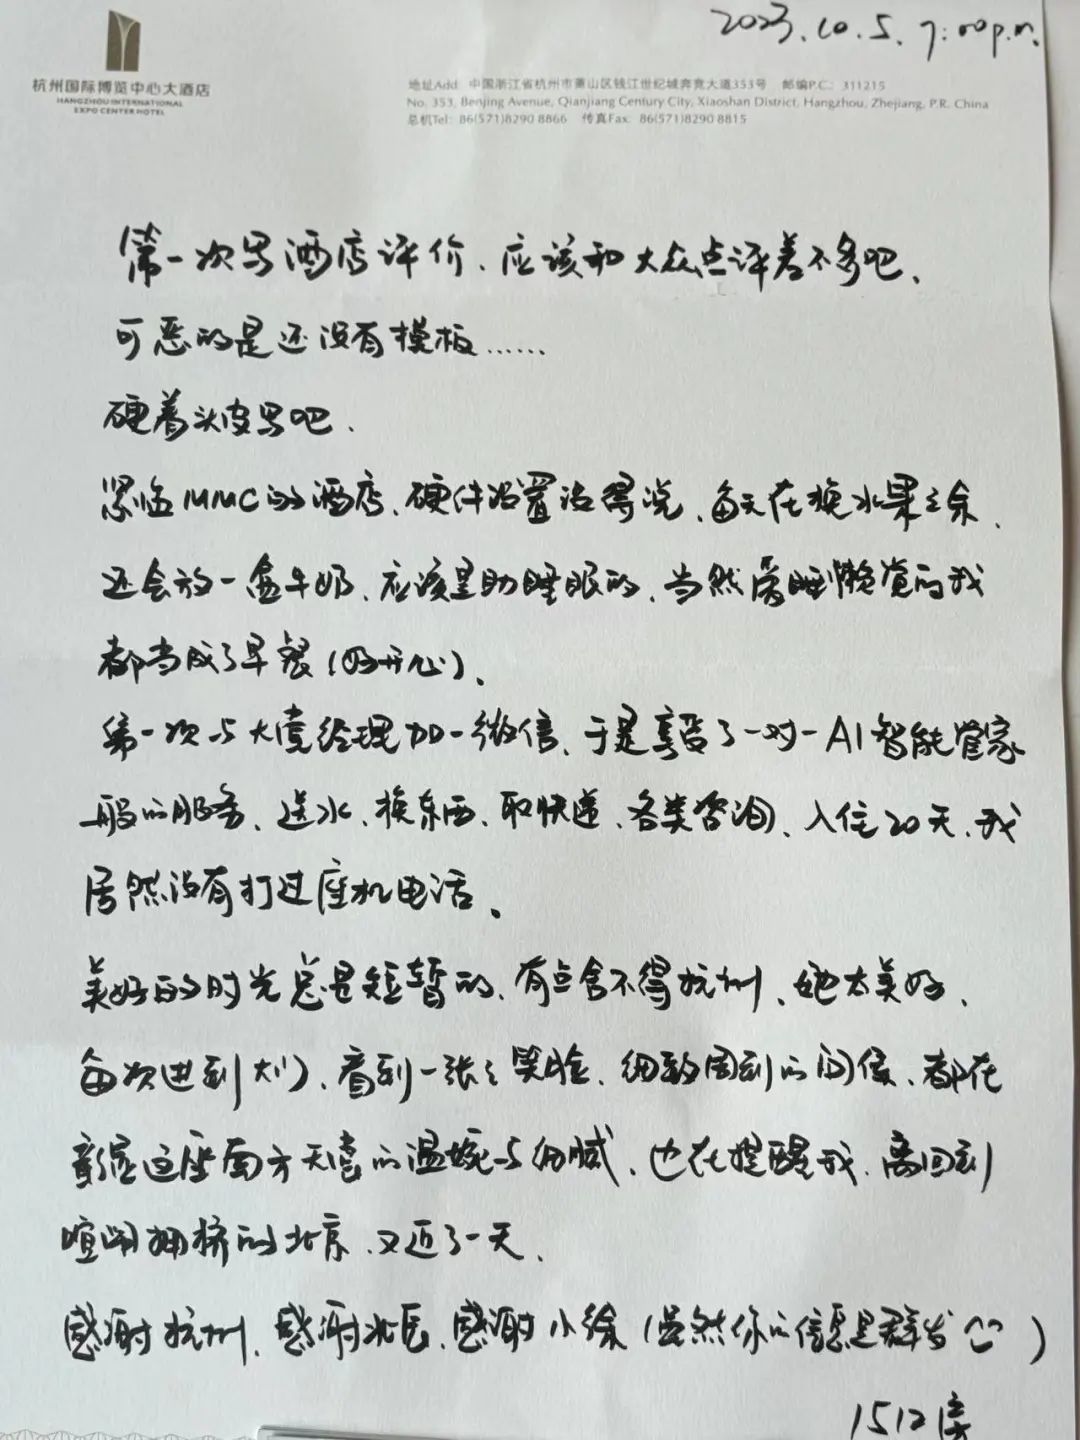 2023.10.5.7:00p.m.
杭州国际博览中心大酒店
HANGZHOU INTERNATIONAL
EXPO CENTER HOTEL
地址Add: 中国浙江省杭州市萧山区钱江世纪城奔竞大道353号 邮编P.C.: 311215
No. 353, Benjing Avenue, Qianjiang Century City, Xiaoshan District, Hangzhou, Zhejiang, P.R. China
总机Tel: 86(571)8290 8866 传真Fax: 86(571)8290 8815
第一次写酒店评价、应该和大众点评差不多吧、
可恶的是还没有模板……
硬着头皮写吧、
紧临MMC的酒店、硬件设置没得说、每天在换水果之余、
还会放一盒牛奶、应该是助睡眠的、当然爱睡懒觉的我
都当成了早餐(好开心)、
第一次与大堂经理加一微信、于是享受了一对一AI智能管家
般的服务、送水、换东西、取快递、各类咨询、入住20天、我
居然没有打过座机电话。
美好的时光总是短暂的、有点舍不得杭州、她太美好、
每次进到大门、看到一张张笑脸、细致周到的问候、都在
彰显这座南方天堂的温婉与细腻、也在提醒我、离回到
喧闹拥挤的北京、又近了一天、
感谢杭州、感谢北辰、感谢小徐(虽然你的信息是群发 )
1512房